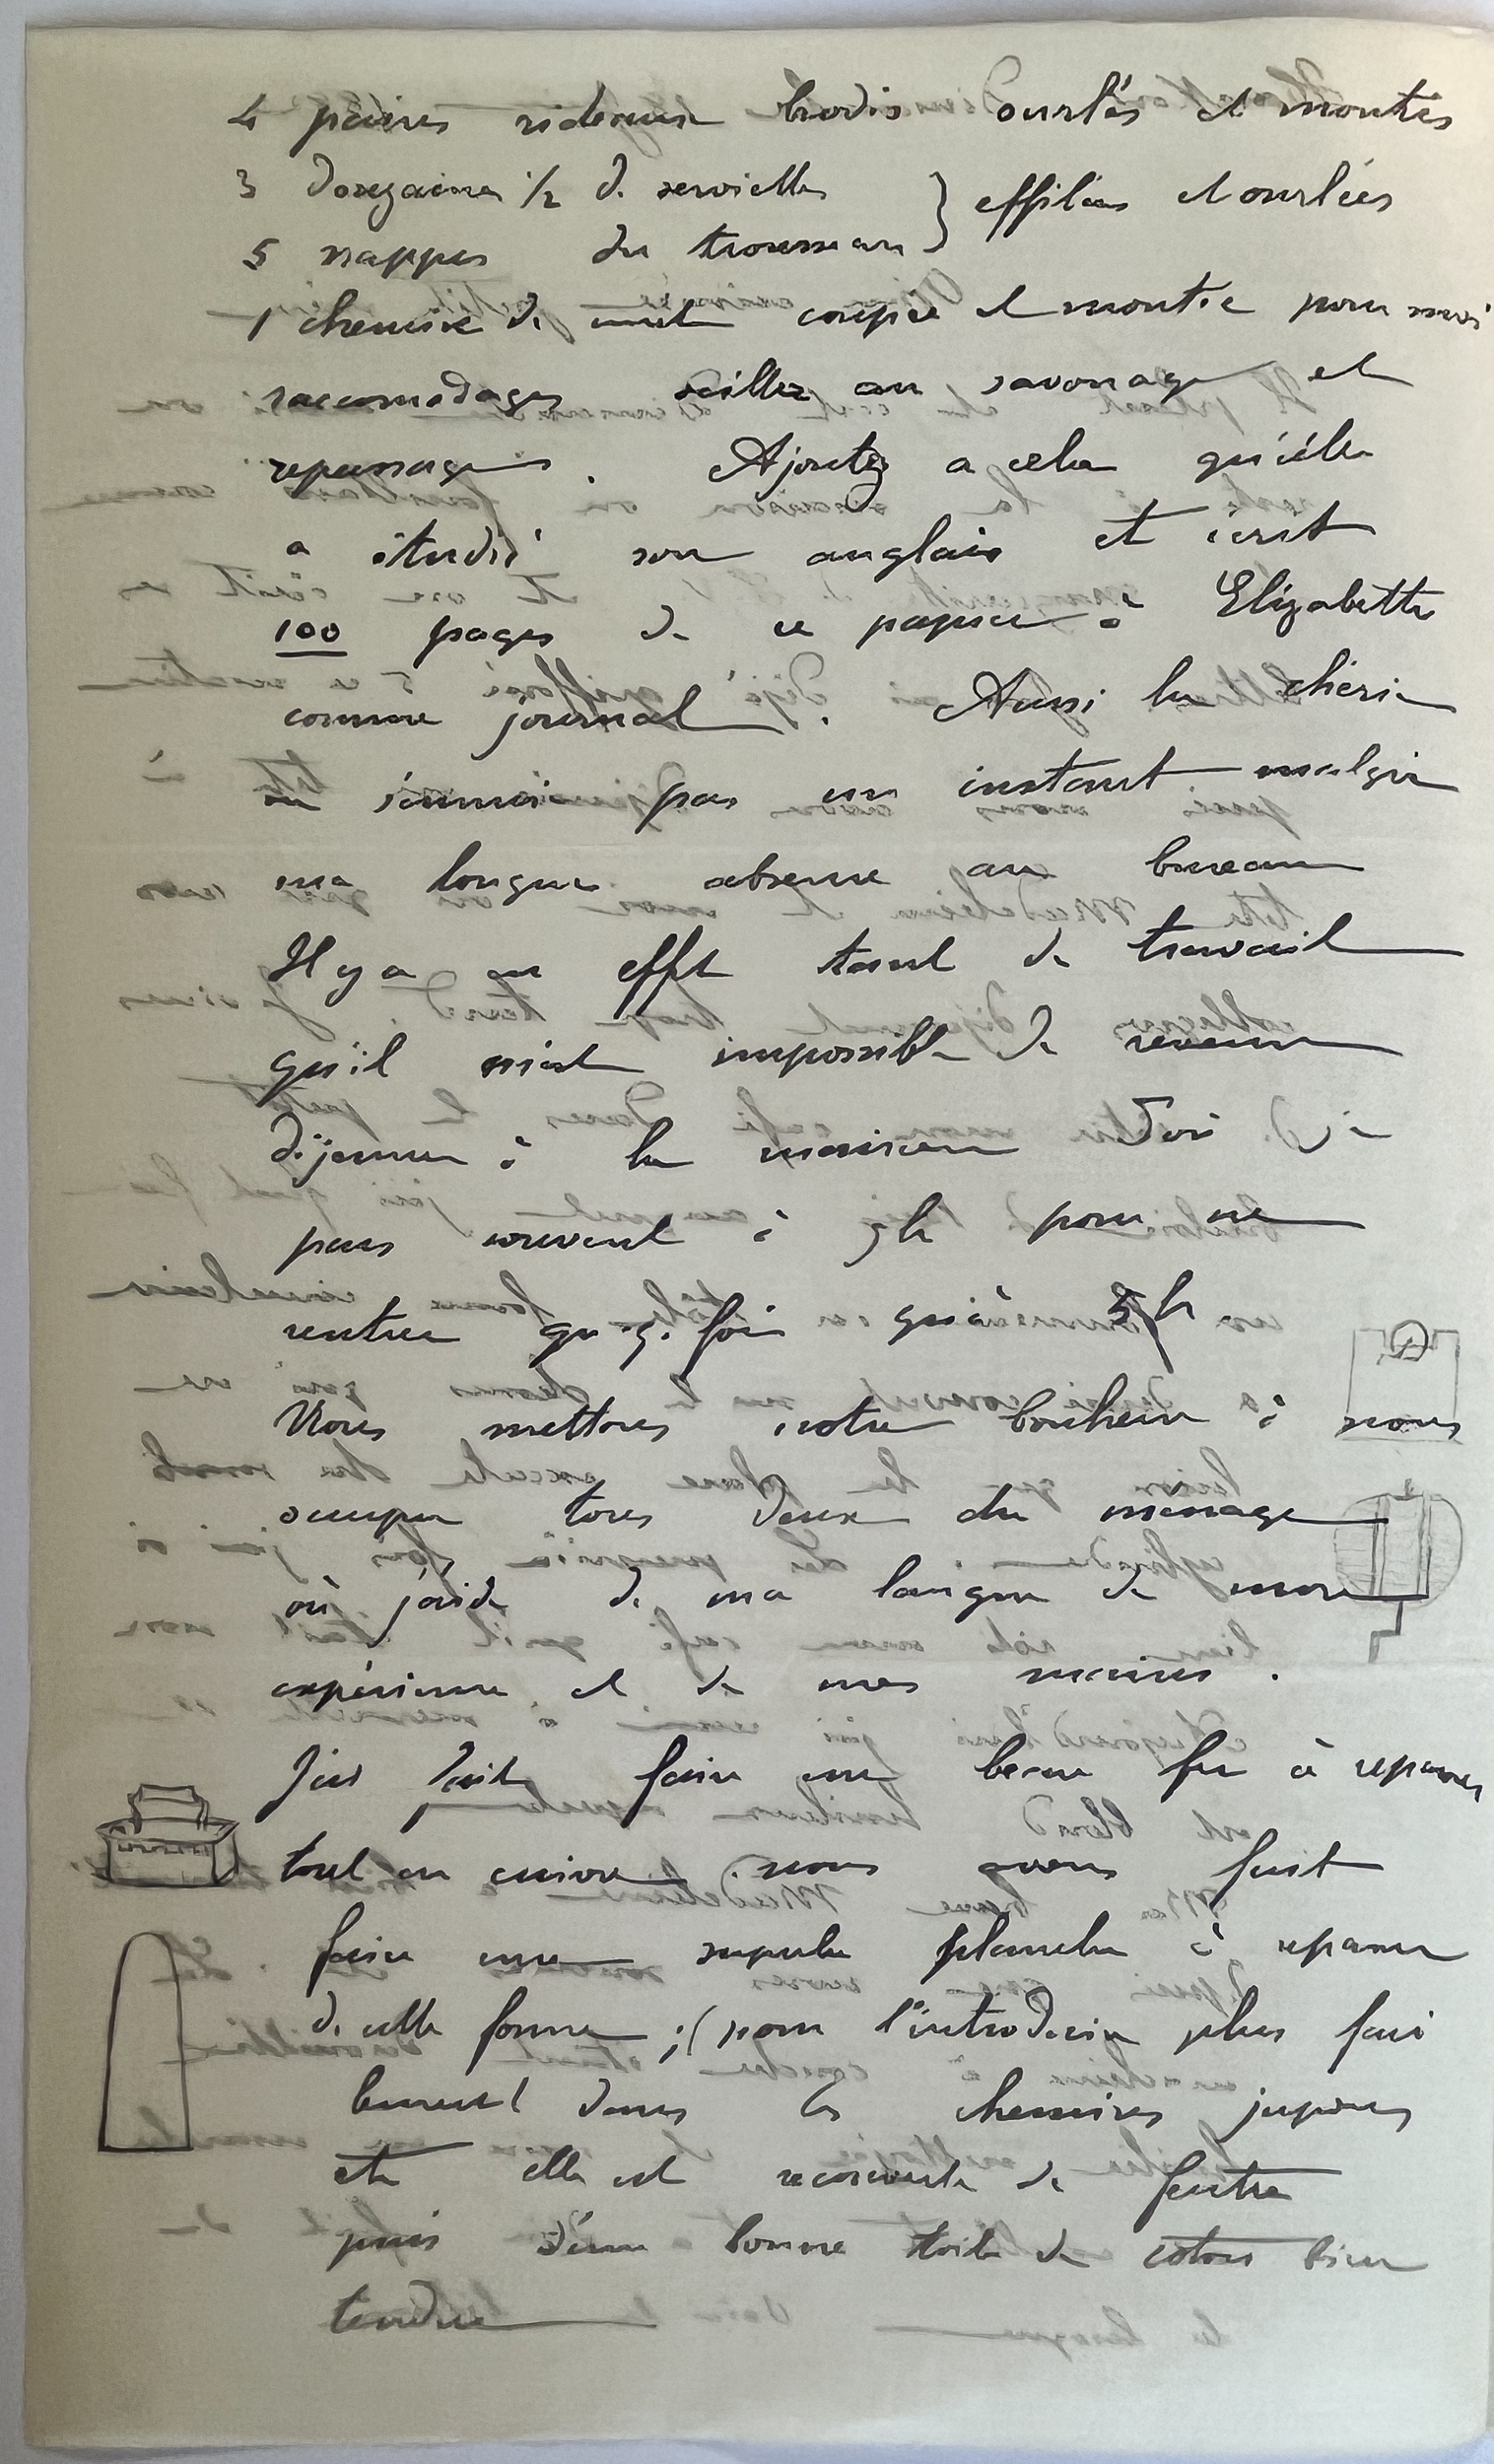 4 paires rideaux brodés ourlés et montés
3 douzaines 1/2 de serviettes } effilées et ourlées
5 nappes du trousseau
1 chemise de nuit coupée et montée pour moi
raccomodages veiller au savonage et
repassages. Ajoutez a cela qu'elle
a étudié son anglais et écrit
100 pages de ce papier à Elizabette
comme journal. Aussi la chérie
ne s'ennuie pas un instant malgré
ma longue absence au bureau
Il y a en effet tant de travail
qu'il m'est impossible de revenir
déjeuner à la maison
pas souvent à 7h pour ne
rentrer qu'à 5h
Nous mettons notre bonheur à nous
occuper tous deux du ménage
où j'aide de ma langue de mon
expérience et de mes mains.
J'ai fait faire un beau fer à repasser
tout en cuivre nous avons fait
faire une superbe planche à repasser
de cette forme ; (pour l'introduire plus faci
lement dans les chemises jupons
etc elle est recouverte de feutre
puis d'une bonne toile de coton bien
tendue